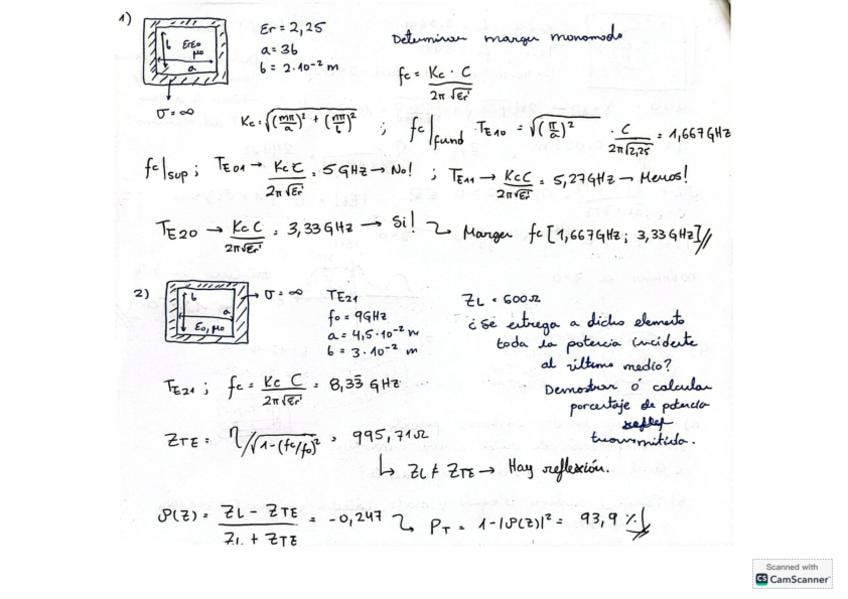 1) b ErEo μo a
Er = 2,25
a = 3b
b = 2·10⁻² m
σ = ∞
Determinar margen monomodo
fc = Kc · C / 2π √Er
Kc = √((mπ/a)² + (nπ/b)²) ; fc|fund TE10 = √((π/a)²) · C / 2π√2,25 = 1,667 GHz
fc|sup ; TE01 → Kc C / 2π √Er = 5 GHz → No! ; TE11 → Kc C / 2π√Er = 5,27 GHz → Menos!
TE20 → Kc C / 2π√Er = 3,33 GHz → Si! ↝ Margen fc [1,667 GHz ; 3,33 GHz]//
2) b a Eo, μo → σ = ∞
TE21
fo = 9 GHz
a = 4,5·10⁻² m
b = 3·10⁻² m
ZL = 600 Ω
¿Se entrega a dicho elemento
toda la potencia incidente
al último medio?
Demostrar ó calcular
porcentaje de potencia
transmitida.
TE21 ; fc = Kc C / 2π √Er = 8,33 GHz
ZTE = η / √1-(fc/fo)² = 995,71 Ω
↳ ZL ≠ ZTE → Hay reflexión.
ρ(Z) = ZL - ZTE / ZL + ZTE = -0,247 ↝ PT = 1-|ρ(Z)|² = 93,9 %//
Scanned with
CS CamScanner